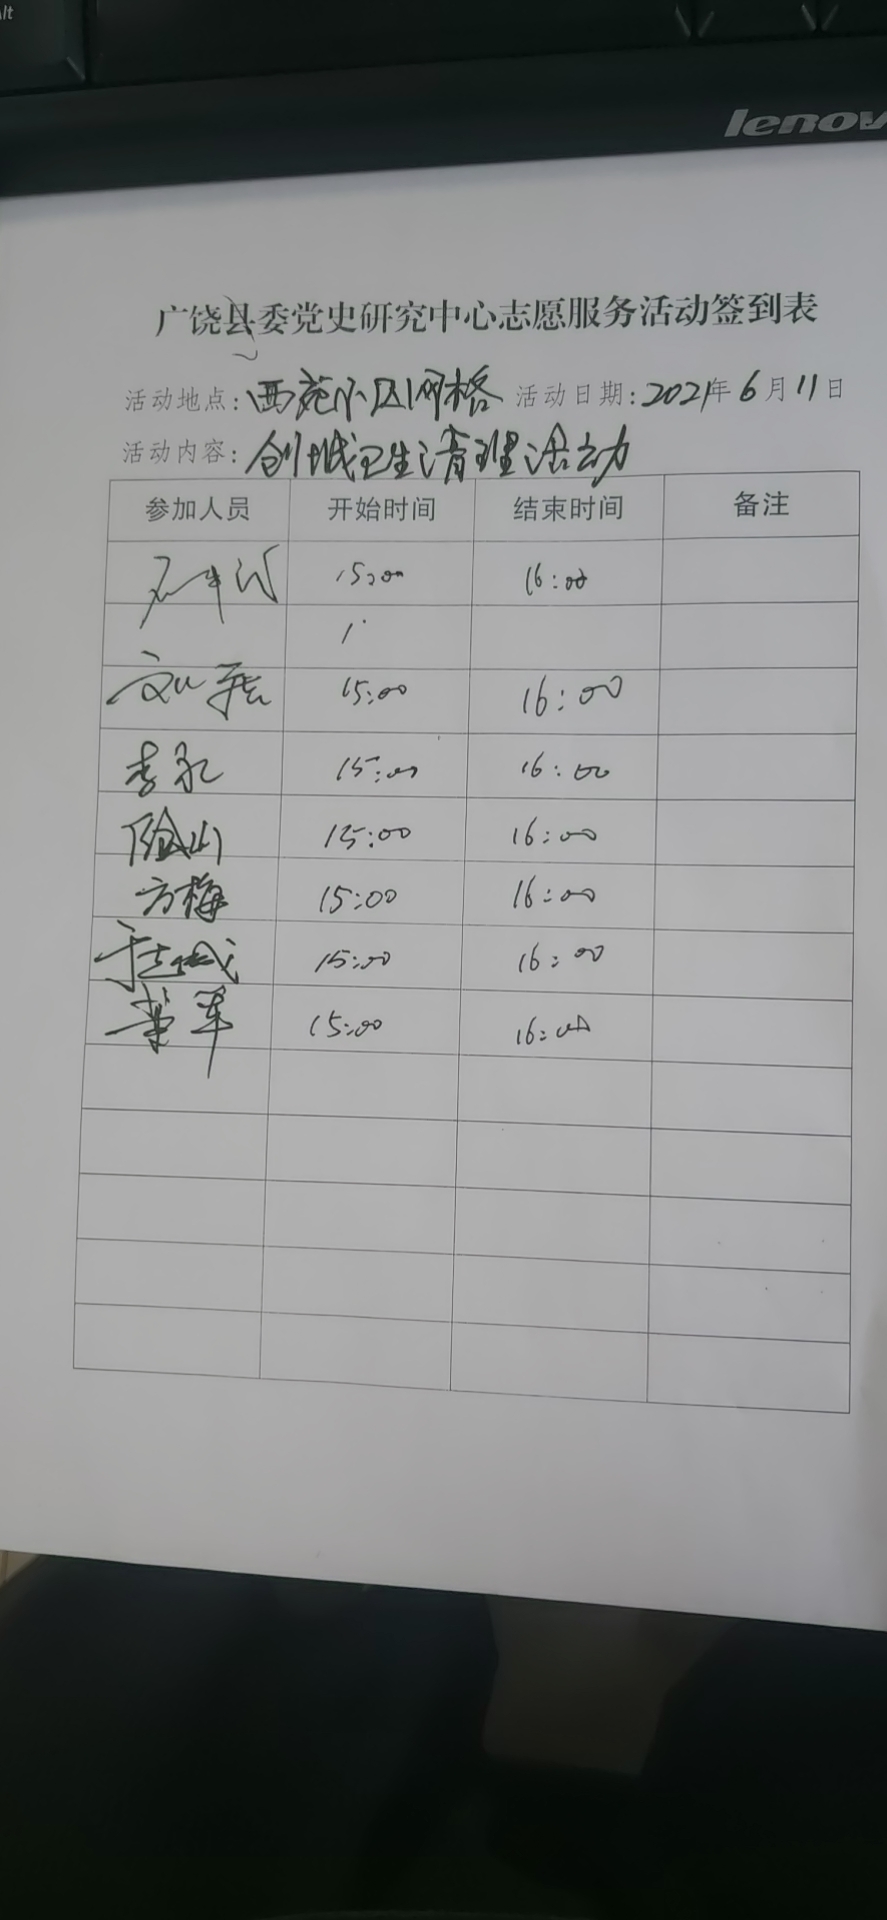 lt
lenov
广饶县委党史研究中心志愿服务活动签到表
活动地点:西苑小区网格 活动日期:2021年6月11日
活动内容:创城卫生清理活动
参加人员 开始时间 结束时间 备注
15:00 16:00
1
15:00 16:00
李永 15:00 16:00
15:00 16:00
方梅 15:00 16:00
15:00 16:00
15:00 16:00